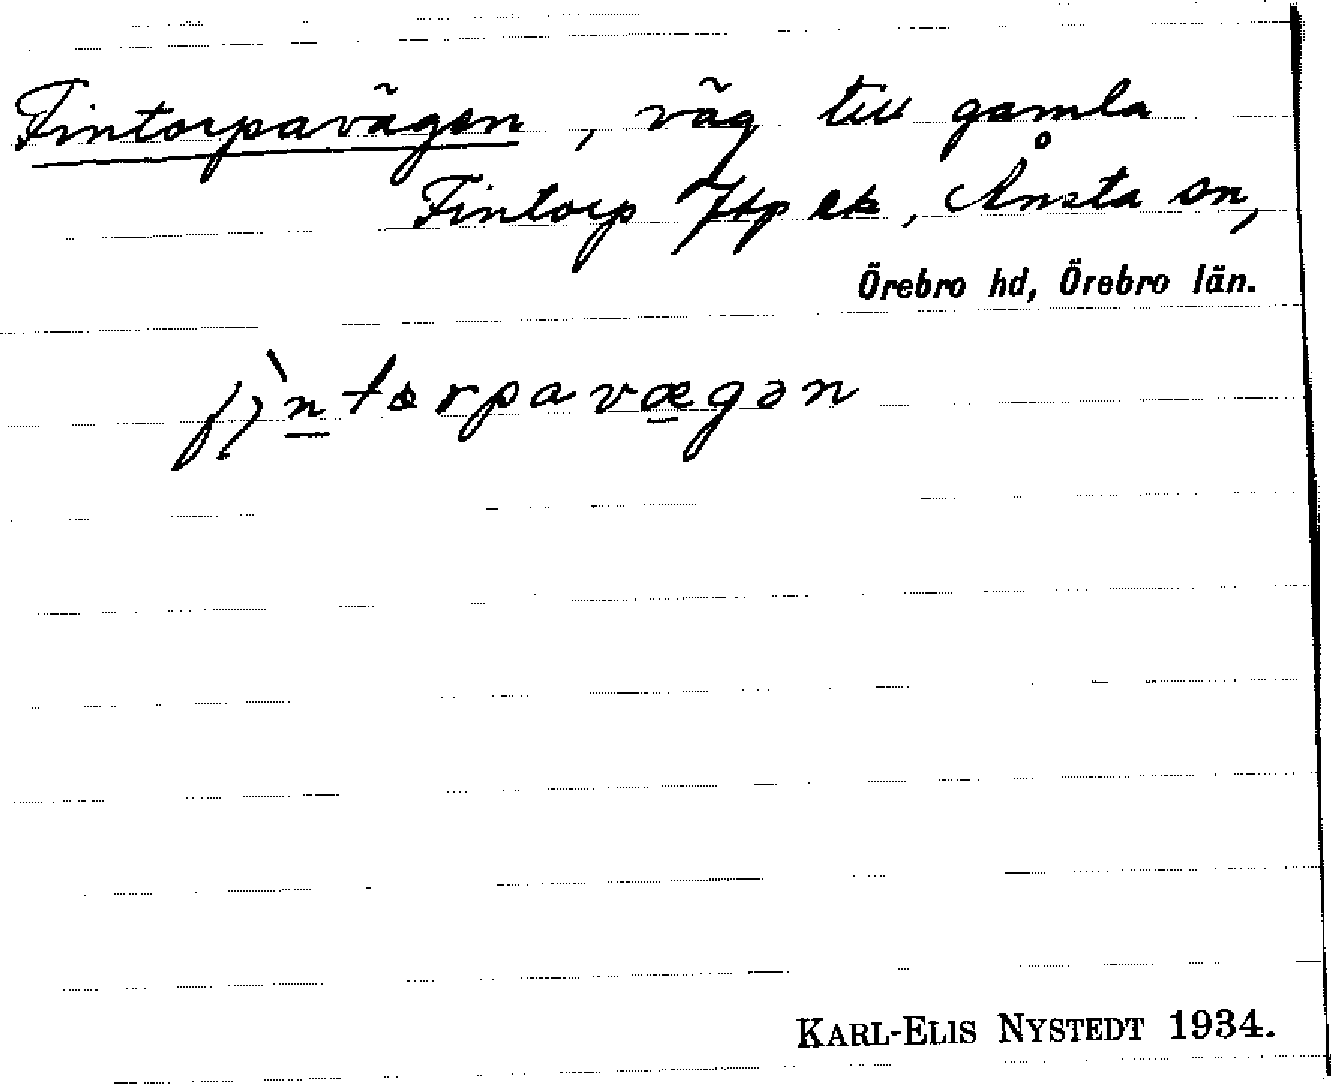 Fintorpavägen, väg till gamla
Fintorp, Ånsta sn,
Örebro hd, Örebro län.
fìntorpavægən
KARL-ELIS NYSTEDT 1934.